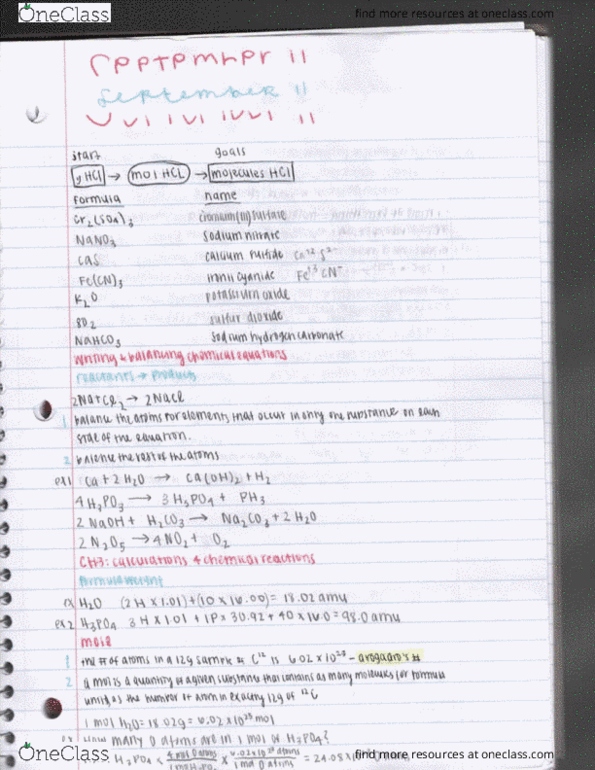 OneClass find more resources at oneclass.com
September 11
September 11
start goals
g HCl → mol HCL → molecules HCl
Formula name
Cr₂(SO₄)₃ chromium(III) sulfate
NaNO₃ sodium nitrate
CaS calcium sulfide Ca⁺² S²⁻
Fe(CN)₃ iron II cyanide Fe⁺³ CN⁻
K₂O potassium oxide
SO₂ sulfur dioxide
NaHCO₃ sodium hydrogen carbonate
Writing & balancing chemical equations
reactants → products
2Na + Cl₂ → 2NaCl
1 balance the atoms for elements that occur in only one substance on each
side of the equation.
2 balance the rest of the atoms
ex 1 Ca + 2H₂O → Ca(OH)₂ + H₂
4H₃PO₃ → 3H₃PO₄ + PH₃
2NaOH + H₂CO₃ → Na₂CO₃ + 2H₂O
2N₂O₅ → 4NO₂ + O₂
CH3: calculations & chemical reactions
formula weight
ex H₂O (2H x 1.01) + (1O x 16.00) = 18.02 amu
ex 2 H₃PO₄ 3H x 1.01 + 1P x 30.92 + 4O x 16.0 = 98.0 amu
mole
1 the # of atoms in a 12g sample of C¹² is 6.02 x 10²³ - avogadro's #
2 a mol is a quantity of a given substance that contains as many molecules (or formula
units) as the number of atom in exactly 12g of ¹²C
1 mol H₂O = 18.02g = 6.02 x 10²³ mol
How many O atoms are in 1 mol of H₃PO₄?
H₃PO₄ x 4 mol O atoms / 1 mol H₃PO₄ x 6.02 x 10²³ atoms / 1 mol O atoms = 24.08 x 10
OneClass find more resources at oneclass.com